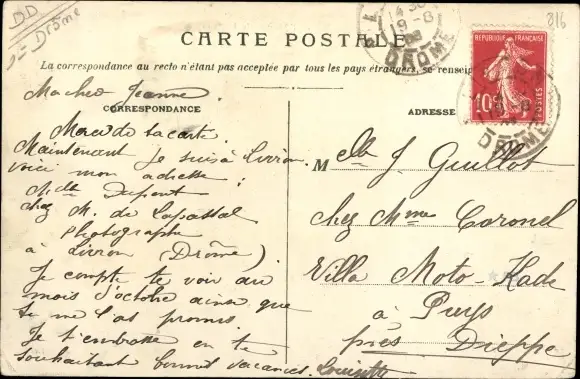 DD
Drôme
816
CARTE POSTALE
La correspondance au recto n'étant pas acceptée par tous les pays étrangers, se renseig
CORRESPONDANCE
ADRESSE
Ma chère Jeanne
Merci de ta carte
Maintenant je suis à Livron
voici mon adresse :
Melle Dupont
chez M. de Lapassal
Photographe
à Livron (Drôme).
Je compte te voir au
mois d'octobre ainsi que
tu me l'as promis
Je t'embrasse en te
souhaitant bonnes vacances. Louisette
Melle J. Guillot
chez Mme Coronel
Villa Moto-Kade
à Puys
près Dieppe
RÉPUBLIQUE FRANÇAISE
10c
POSTES
19-8
DROME
DROME